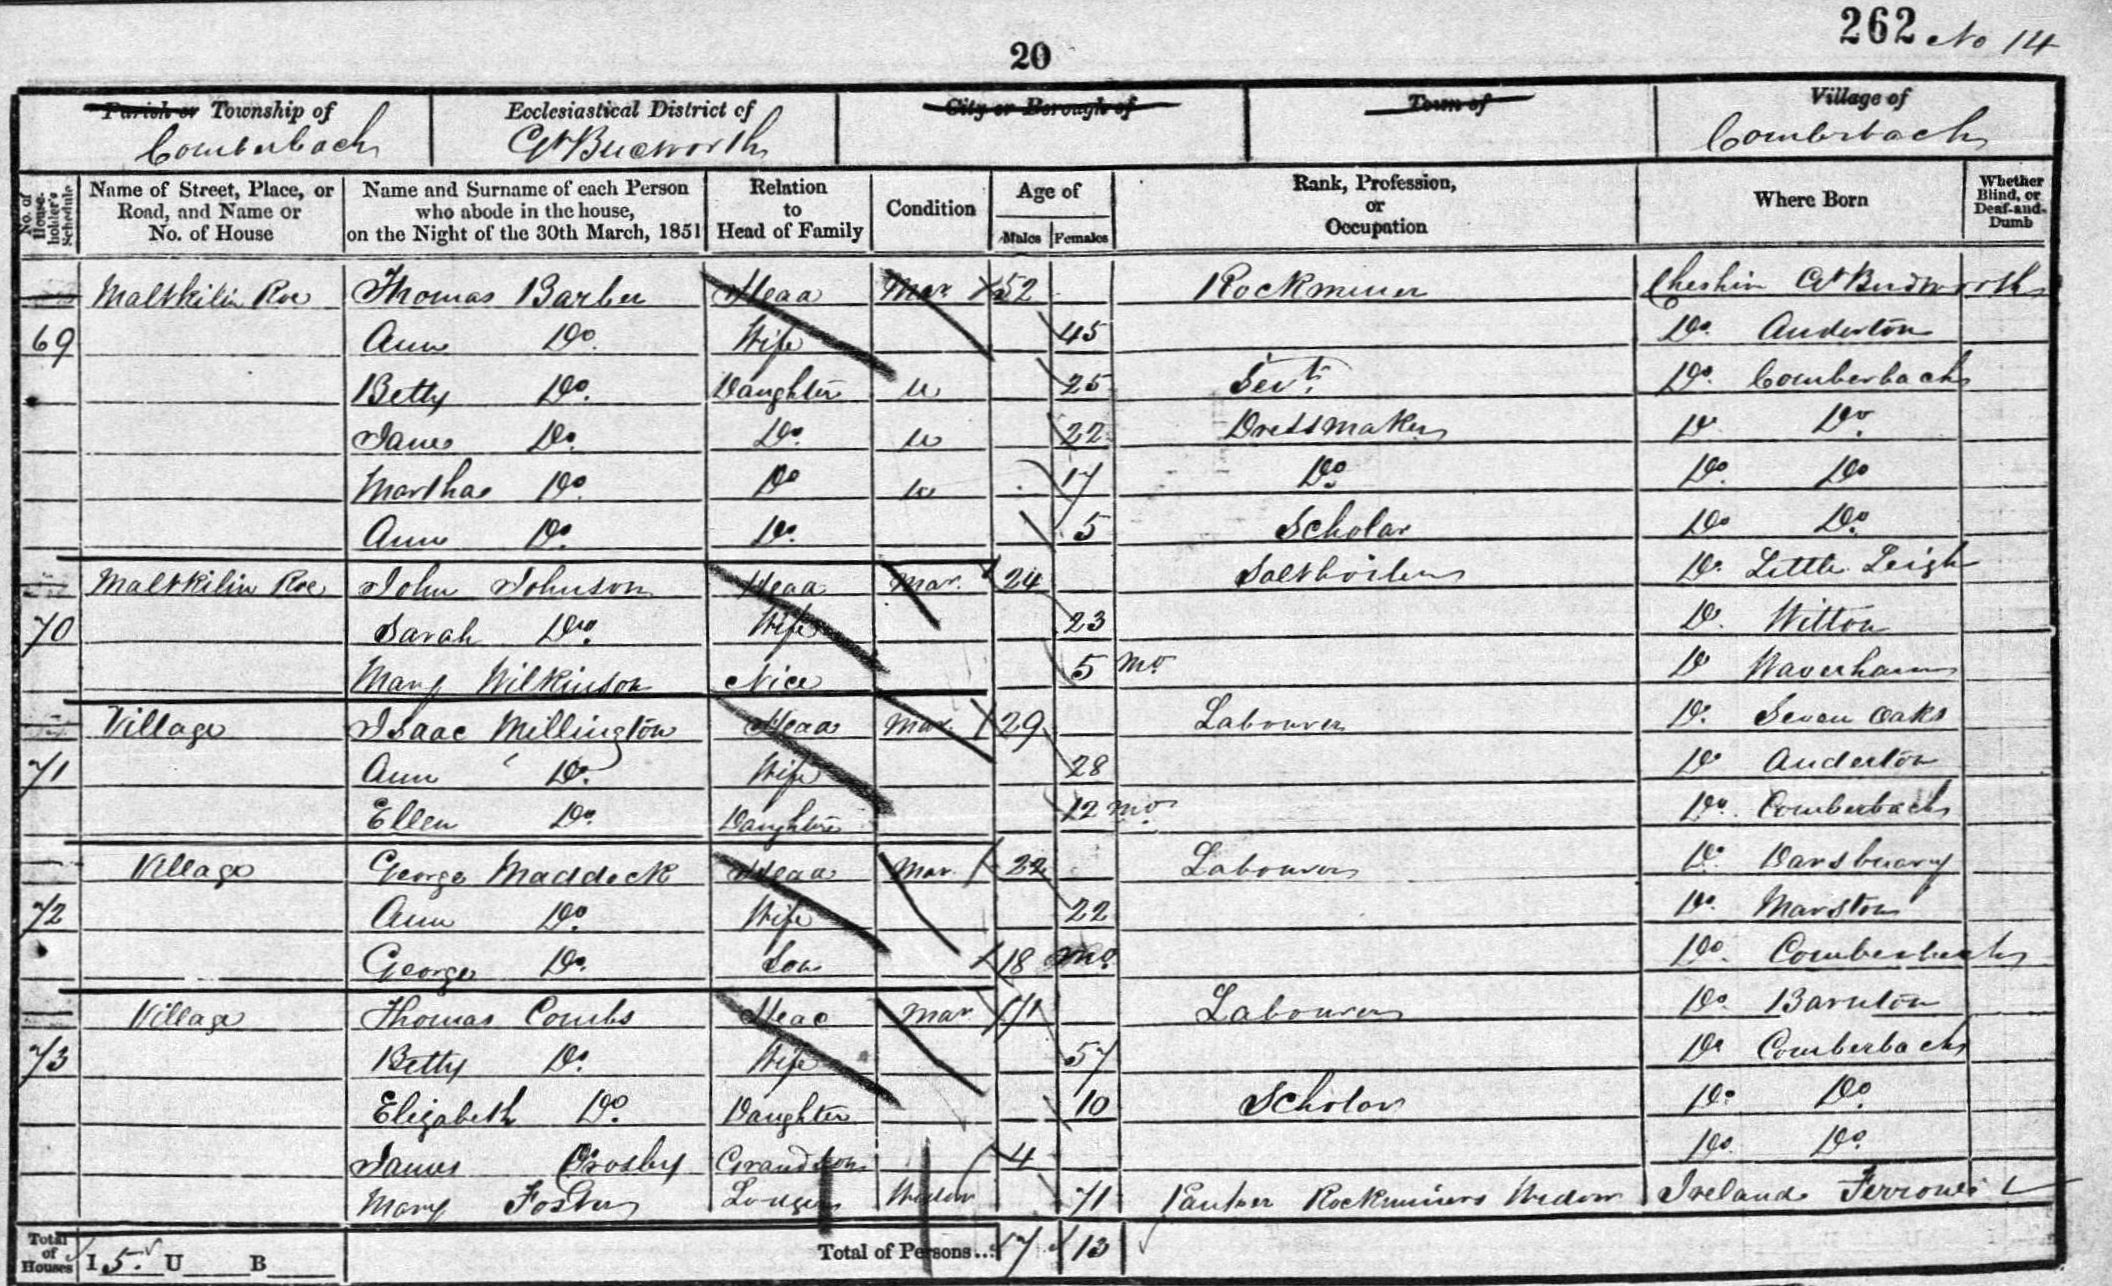 262 No 14
20
Parish or Township of Comberbach
Ecclesiastical District of Gt Budworth
City or Borough of
Town of
Village of Comberbach
No. of House-holder's Schedule
Name of Street, Place, or Road, and Name or No. of House
Name and Surname of each Person who abode in the house, on the Night of the 30th March, 1851
Relation to Head of Family
Condition
Age of Males Females
Rank, Profession, or Occupation
Where Born
Whether Blind, or Deaf-and-Dumb
Maltkilin Roe Thomas Barber Head Mar 52 Rockminer Cheshire Gt Budworth
69 Ann Do. Wife 45 Do. Anderton
Betty Do. Daughter U 25 Servt. Do. Comberbach
Jane Do. Do. U 22 Dressmaker Do Do.
Martha Do. Do U 17 Do. Do. Do
Ann Do. Do. 5 Scholar Do Do.
Maltkilin Roe John Johnson Head Mar. 24 Saltboiler Do. Little Leigh
70 Sarah Do. Wife 23 Do. Witton
Mary Wilkinson Nice 5 Mo Do Waverham
Village Isaac Millington Head Mar 29 Labourer Do. Seven Oaks
71 Ann Do. Wife 28 Do Anderton
Ellen Do. Daughter 12 Mo. Do. Comberbach
Village George Maddock Head Mar. 22 Labourer Do. Darsbuary
72 Ann Do. Wife 22 Do. Marston
George Do. Son 18 Mo. Do. Comberbach
Village Thomas Combs Head Mar 71 Labourer Do. Barnton
73 Betty Do. Wife 57 Do Comberbach
Elizabeth Do. Daughter 10 Scholar Do. Do.
James Crosby Grandson 4 Do. Do.
Mary Foster Lodger Widow 71 Pauper Rockminers Widow Ireland
Total of Houses I 5. U B Total of Persons... 7 13